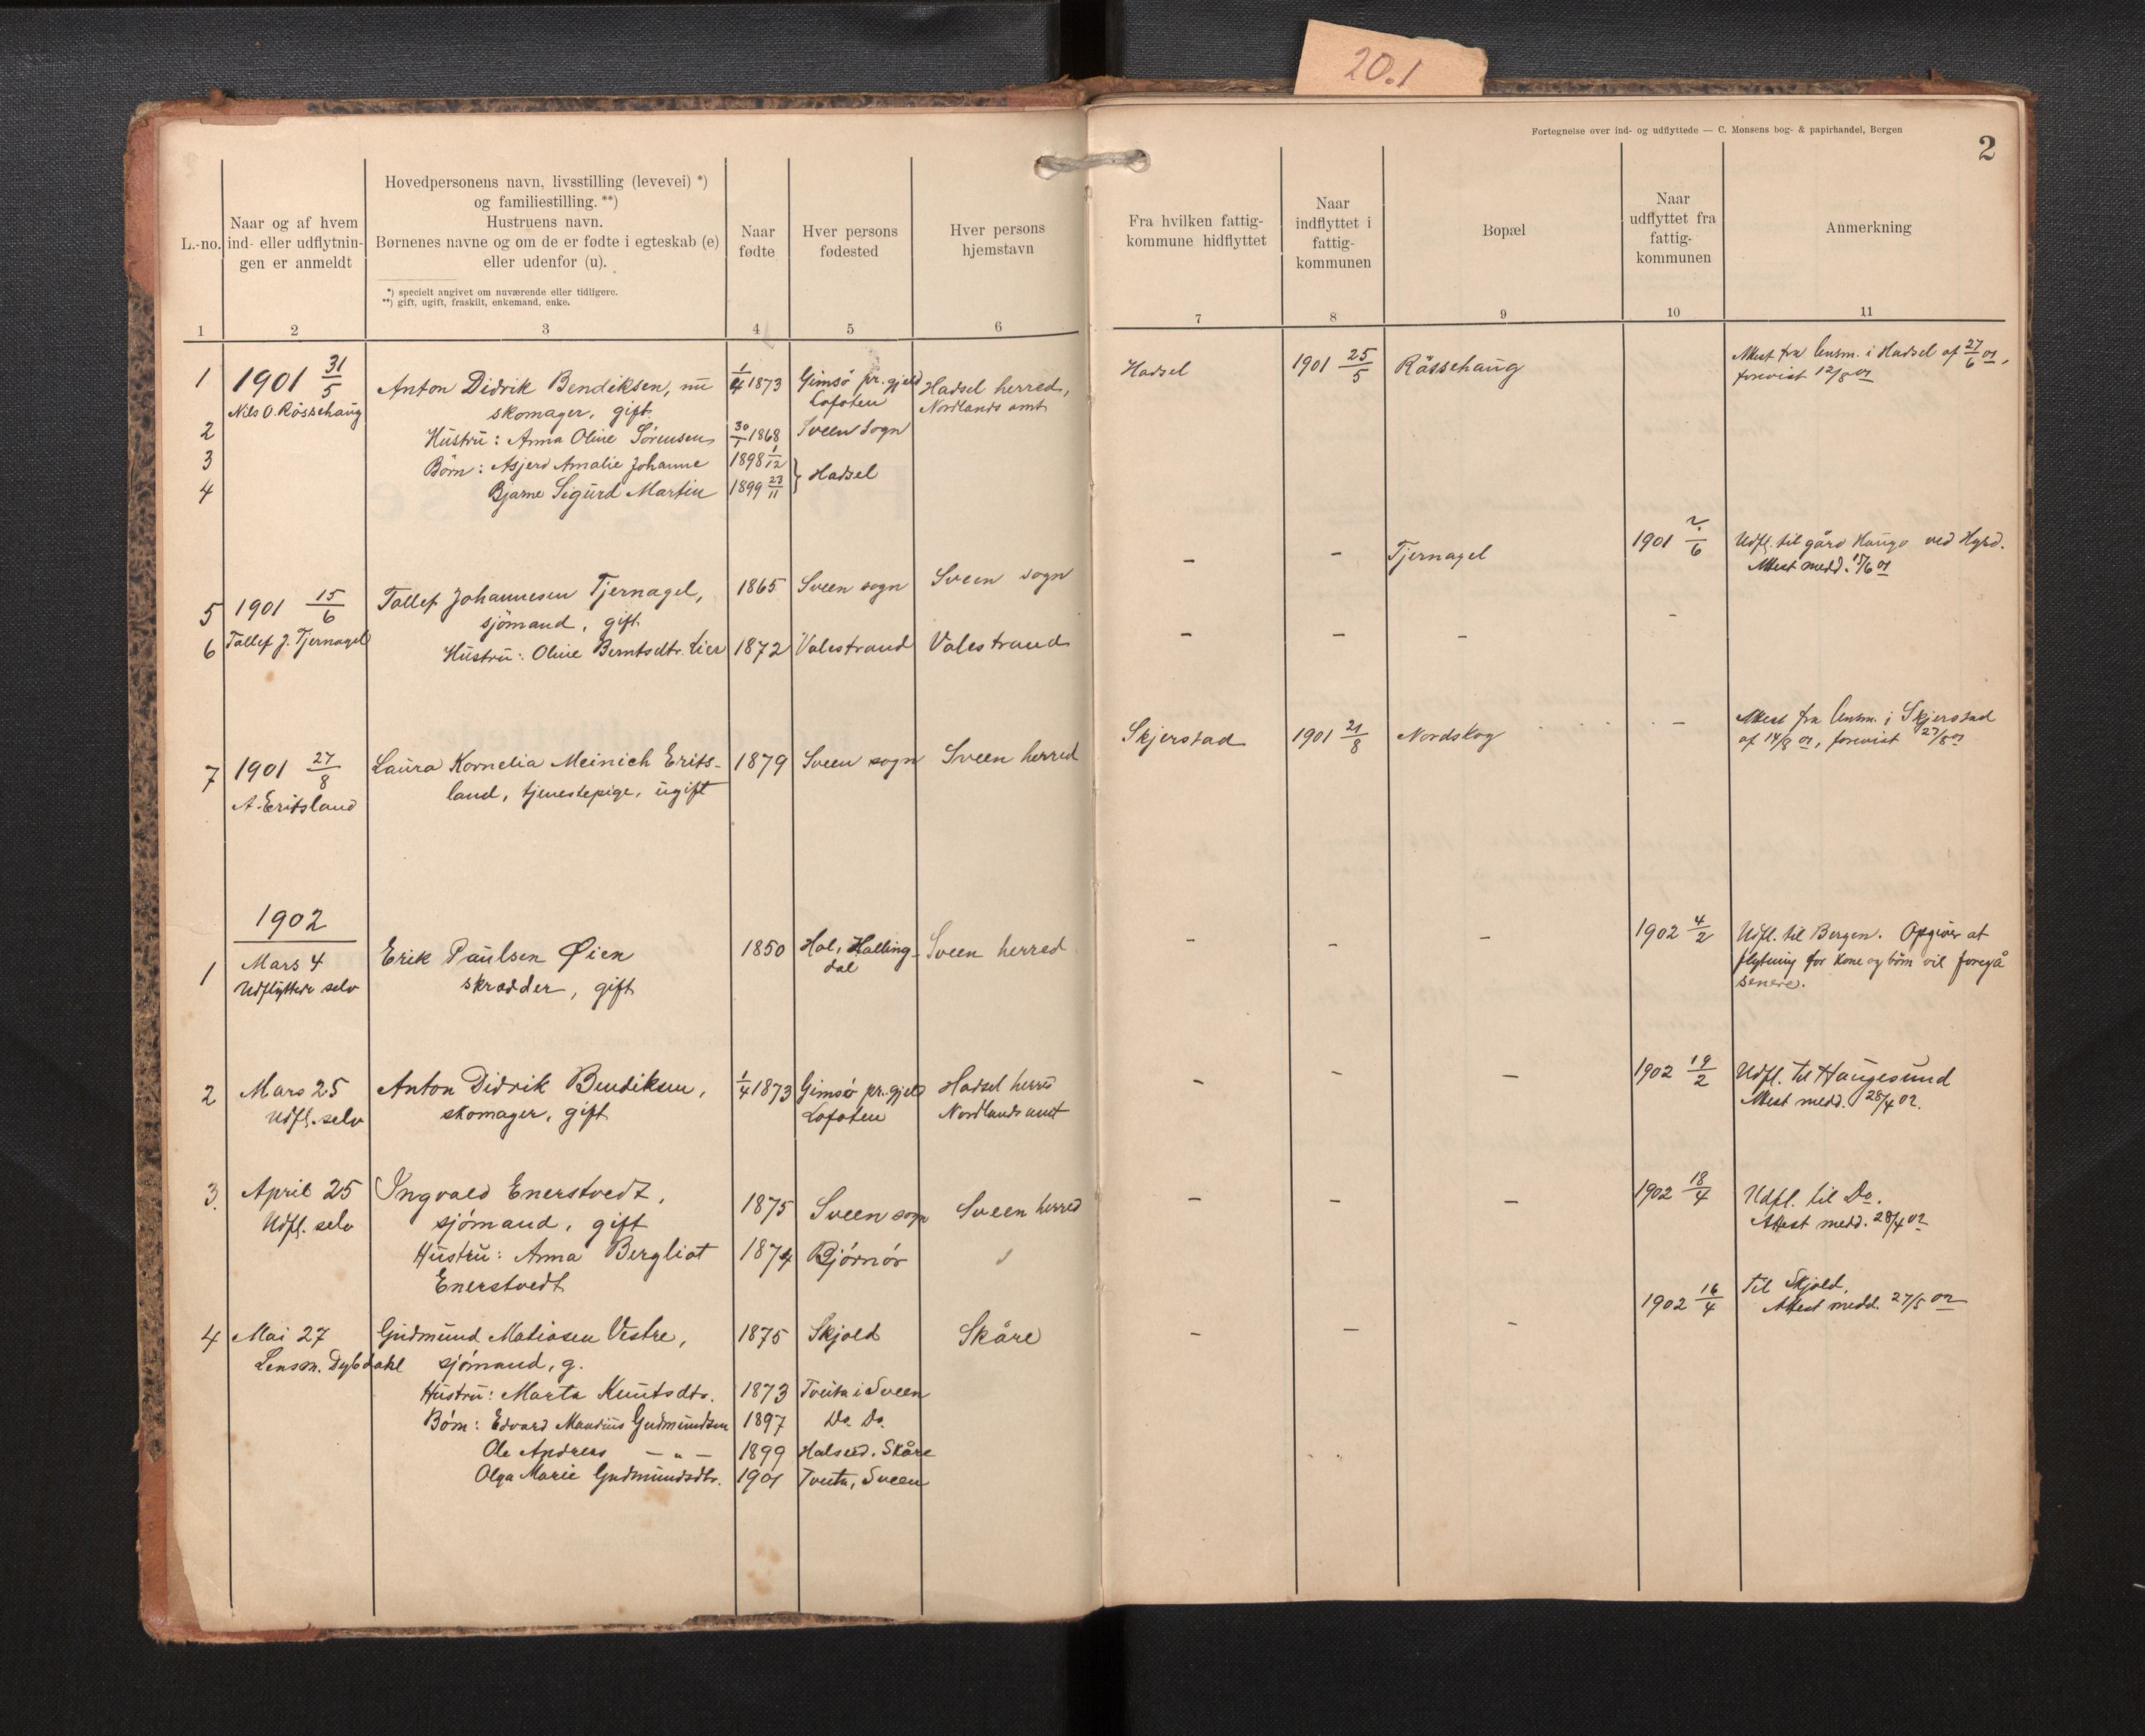 20.1
Fortegnelse over ind- og udflyttede — C. Monsens bog- & papirhandel, Bergen
2
L.-no.
Naar og af hvem
ind- eller udflytnin-
gen er anmeldt
Hovedpersonens navn, livsstilling (levevei) *)
og familiestilling. **)
Hustruens navn.
Børnenes navne og om de er fødte i egteskab (e)
eller udenfor (u).
*) specielt angivet om nuværende eller tidligere.
**) gift, ugift, fraskilt, enkemand, enke.
Naar
fødte
Hver persons
fødested
Hver persons
hjemstavn
Fra hvilken fattig-
kommune hidflyttet
Naar
indflyttet i
fattig-
kommunen
Bopæl
Naar
udflyttet fra
fattig-
kommunen
Anmerkning
1 2 3 4 5 6 7 8 9 10 11
1 1901 31/5 Anton Didrik Bendiksen, nu 1/4 1873 Gimsö pr.gjeld Hadsel herred, Hadsel 1901 25/5 Rässehaug Attest fra lensm. i Hadsel af 27/6 01,
Nils O. Rössehaug skomager, gift. Lofoten Nordlands amt forevist 12/8 01
2 Hustru: Anna Oline Sörensen 30/1 1868 Sveen sogn
3 Børn: Asjerd Amalie Johanne 1898 1/12 } Hadsel
4 Bjarne Sigurd Martin 1899 23/11
5 1901 15/6 Tollef Johannesen Tjernagel, 1865 Sveen sogn Sveen sogn – – Tjernagel 1901 /6 Udfl. til gård Hauge ved Hgsd.
sjömand, gift. Attest medd. 15/6 01
6 Tollef J. Tjernagel Hustru: Oline Berntsdtr. Lier 1872 Valestrand Valestrand – – – –
7 1901 27/8 Laura Kornelia Meinich Erits- 1879 Sveen sogn Sveen herred Skjerstad 1901 21/8 Nordskog – Attest fra lensm. i Skjerstad
A. Eritsland land, tjenestepige, ugift af 14/8 01, forevist 27/8 01
1902
1 Mars 4 Erik Paulsen Øien 1850 Hol, Halling- Sveen herred – – – 1902 4/2 Udfl. til Bergen. Opgiver at
Udflyttede selv skrædder, gift dal flytning for kone og børn vil foregå
senere.
2 Mars 25 Anton Didrik Bendiksen, 1/4 1873 Gimsö pr.gjeld Hadsel herred – – – 1902 19/2 Udfl. til Haugesund
Udfl. selv skomager, gift Lofoten Nordlands amt Attest medd. 28/4 02.
3. April 25 Ingvald Enerstvedt, 1875 Sveen sogn Sveen herred – – – 1902 18/4 Udfl. til Do.
Udfl. selv sjömand, gift Attest medd. 28/4 02
Hustru: Anna Bergliot 1874 Björnör
Enerstvedt
4 Mai 27 Gudmund Matiasen Vestre, 1875 Skjold Skåre – – – 1902 16/4 Til Skjold.
Lensm. Dybdahl sjömand, g. Attest medd. 27/5 02
Hustru: Marta Knutsdtr. 1873 Tveita i Sveen
Børn: Edvard Mandius Gudmundsen 1897 Do. Do.
Ole Andreas — „ — 1899 Halseid. Skåre
Olga Marie Gudmundsdtr. 1901 Tveita, Sveen